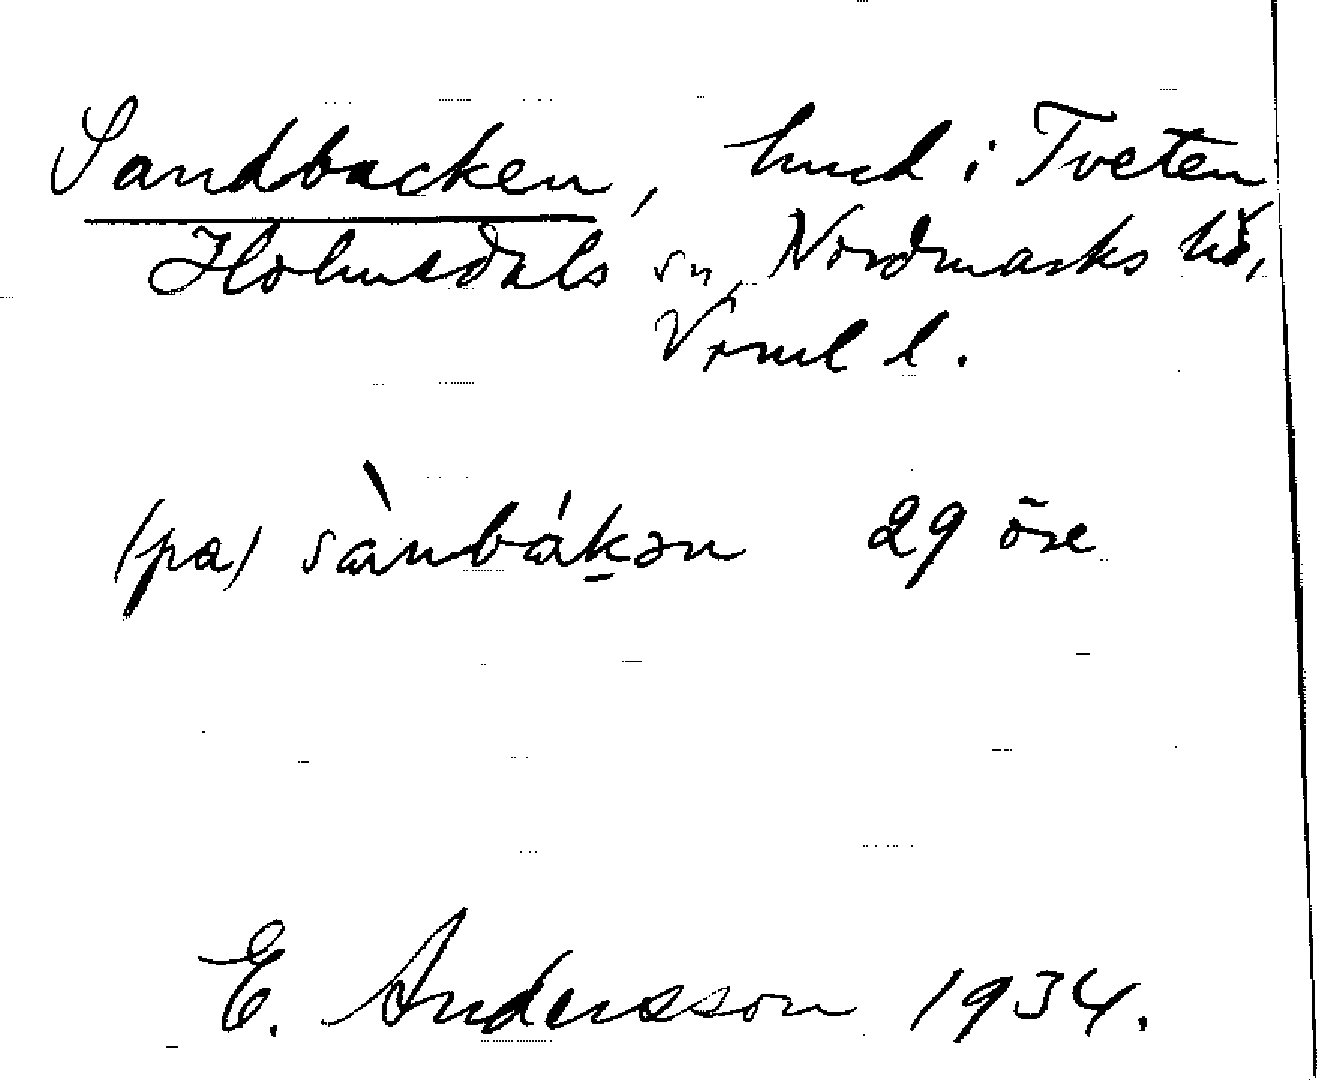 Sandbacken, hmd i Tveten
Holmedals sn, Nordmarks hd,
Vrml l.
(pa) sànbákən 29 öre
E. Andersson 1934.